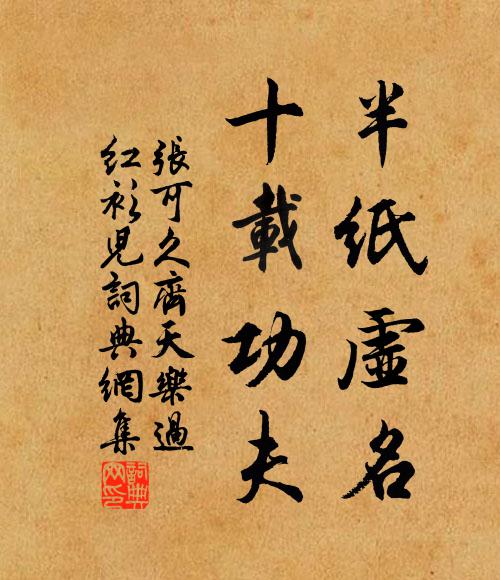 半紙虛名
十載功夫
張可久齊天樂過
紅衫兒詞典網集
詞典
网印